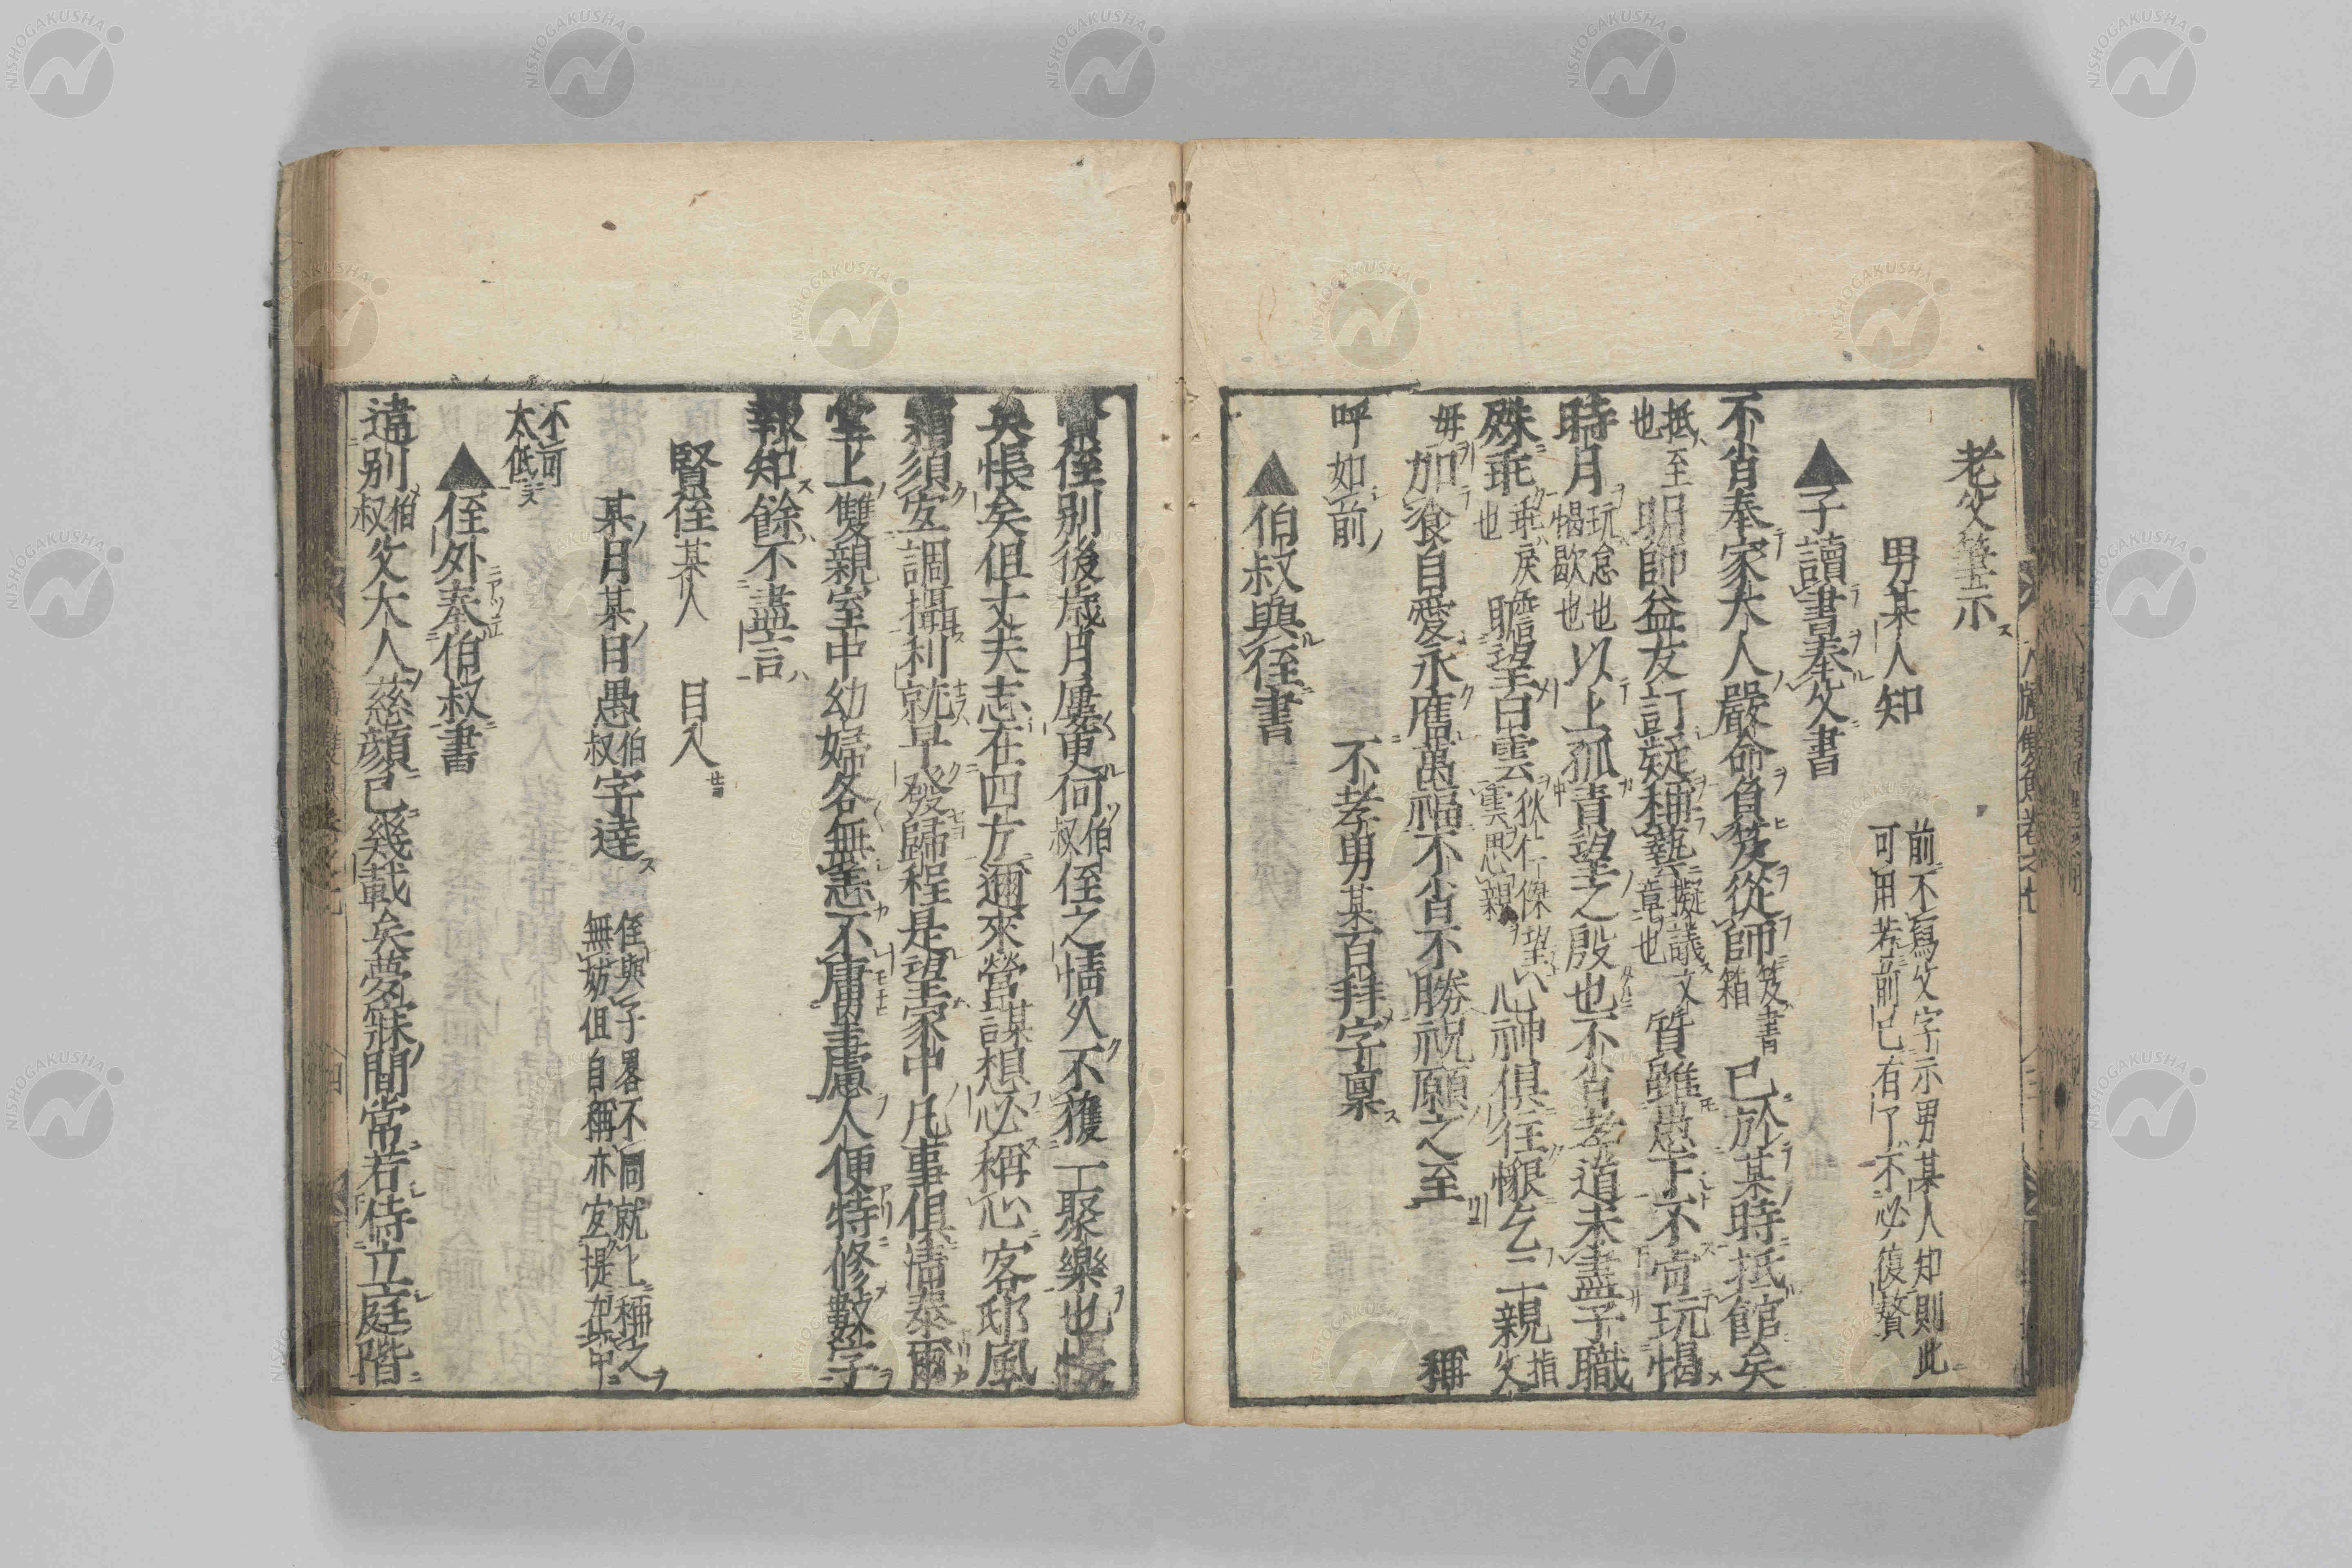 老父筆示
男某人知 前不寫父字示男某人知則此可用若前已有了不必復贅
▲子讀書奉父書
不肖奉家大人嚴命負笈從師 笈書箱 已於某時抵館矣
抵至也 明師益友訂疑稱藝 擬議文章也 質雖愚下不肯玩愒
時月 玩怠也愒歇也 以上孤責望之殷也不肖孝道未盡子職
殊乖 乖戾也 瞻望白雲 狄仁傑望雲思親 心神俱往懶乞二親 指父
毋 加飡自愛永膺萬福不肖不勝祝願之至 稱
呼如前 不孝男某百拜字稟
▲伯叔與侄書
侄別後歲月屢更何 伯叔 侄之情久不獲一聚樂也悵
矣悵矣但丈夫志在四方邇來營謀想必稱心客邸風
霜須安調攝利就早發歸程是望家中凡事俱淸泰爾
堂上雙親室中幼婦各無恙不庸罣慮人便特修數字
報知餘不盡言
賢侄某人 目入
某月某日愚 伯叔 字達 侄與子畧不同就上稱之無妨但自稱亦宜提在中
不可太低
▲侄外奉伯叔書
違別 伯叔 父大人慈顏已幾載矣夢寐間常若侍立庭階
NISHOGAKUSHA